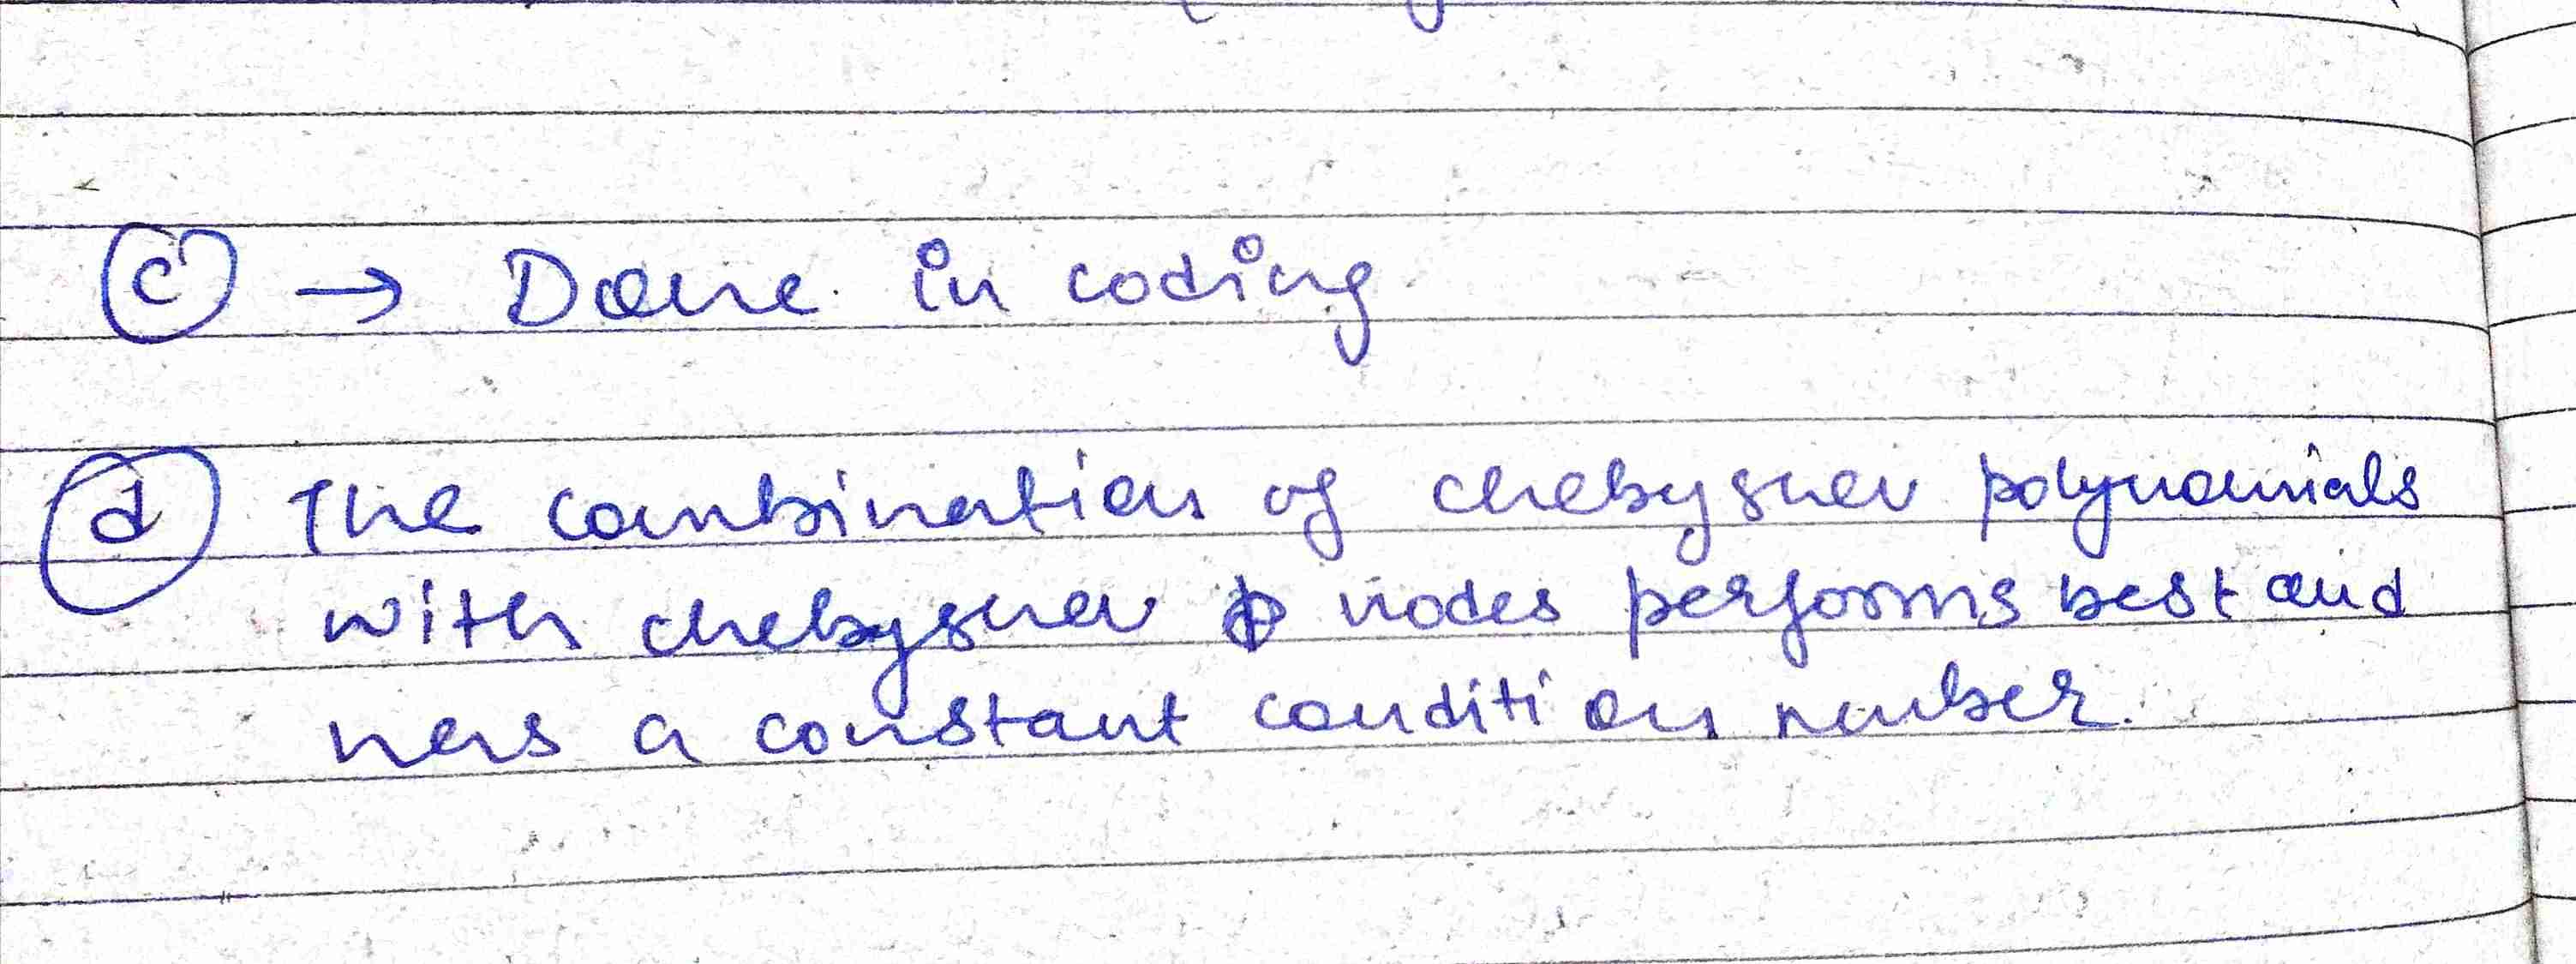 c → Done in coding
d The combination of chebyshev polynomials
with chebyshev nodes performs best and
has a constant condition number.